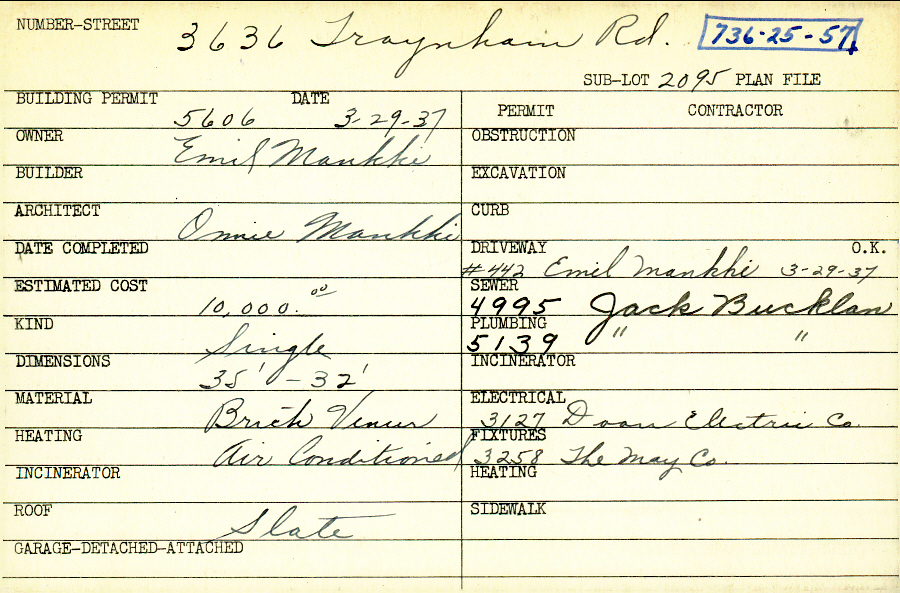 NUMBER-STREET 3636 Traynham Rd. 736-25-57
SUB-LOT 2095 PLAN FILE
BUILDING PERMIT 5606 DATE 3-29-37
PERMIT CONTRACTOR
OWNER Emil Mankki
OBSTRUCTION
BUILDER
EXCAVATION
ARCHITECT Onnie Mankki
CURB
DATE COMPLETED
DRIVEWAY #442 Emil Mankki 3-29-37 O.K.
ESTIMATED COST 10,000.00
SEWER 4995 Jack Bucklan
KIND Single
PLUMBING 5139 " "
DIMENSIONS 35' - 32'
INCINERATOR
MATERIAL Brick Venur
ELECTRICAL 3127 Doan Electric Co.
HEATING Air Conditioned
FIXTURES 3258 The May Co.
INCINERATOR
HEATING
ROOF Slate
SIDEWALK
GARAGE-DETACHED-ATTACHED